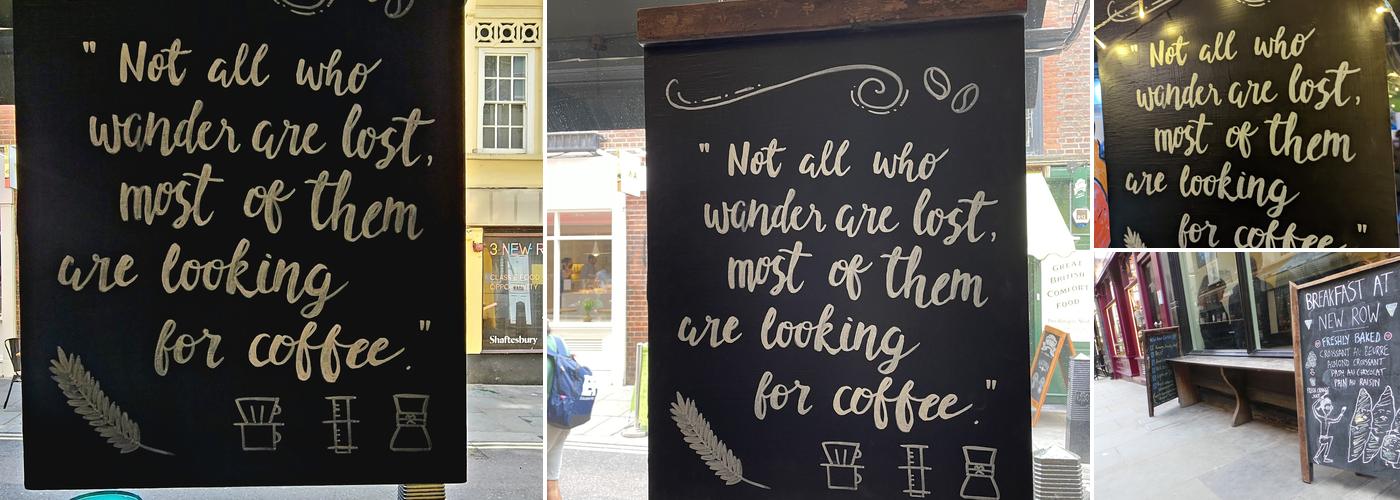 " Not all who
wander are lost,
most of them
are looking
for coffee."
3 NEW R
CLASS E FOOD
OPPORTUNITY
Shaftesbury
" Not all who
wander are lost,
most of them
are looking
for coffee."
GREAT
BRITISH
COMFORT
FOOD
" Not all who
wander are lost,
most of them
are looking
for coffee."
BREAKFAST AT
NEW ROW
FRESHLY BAKED
CROISSANT AU BEURRE
ALMOND CROISSANT
PAIN AU CHOCOLAT
PAIN AU RAISIN